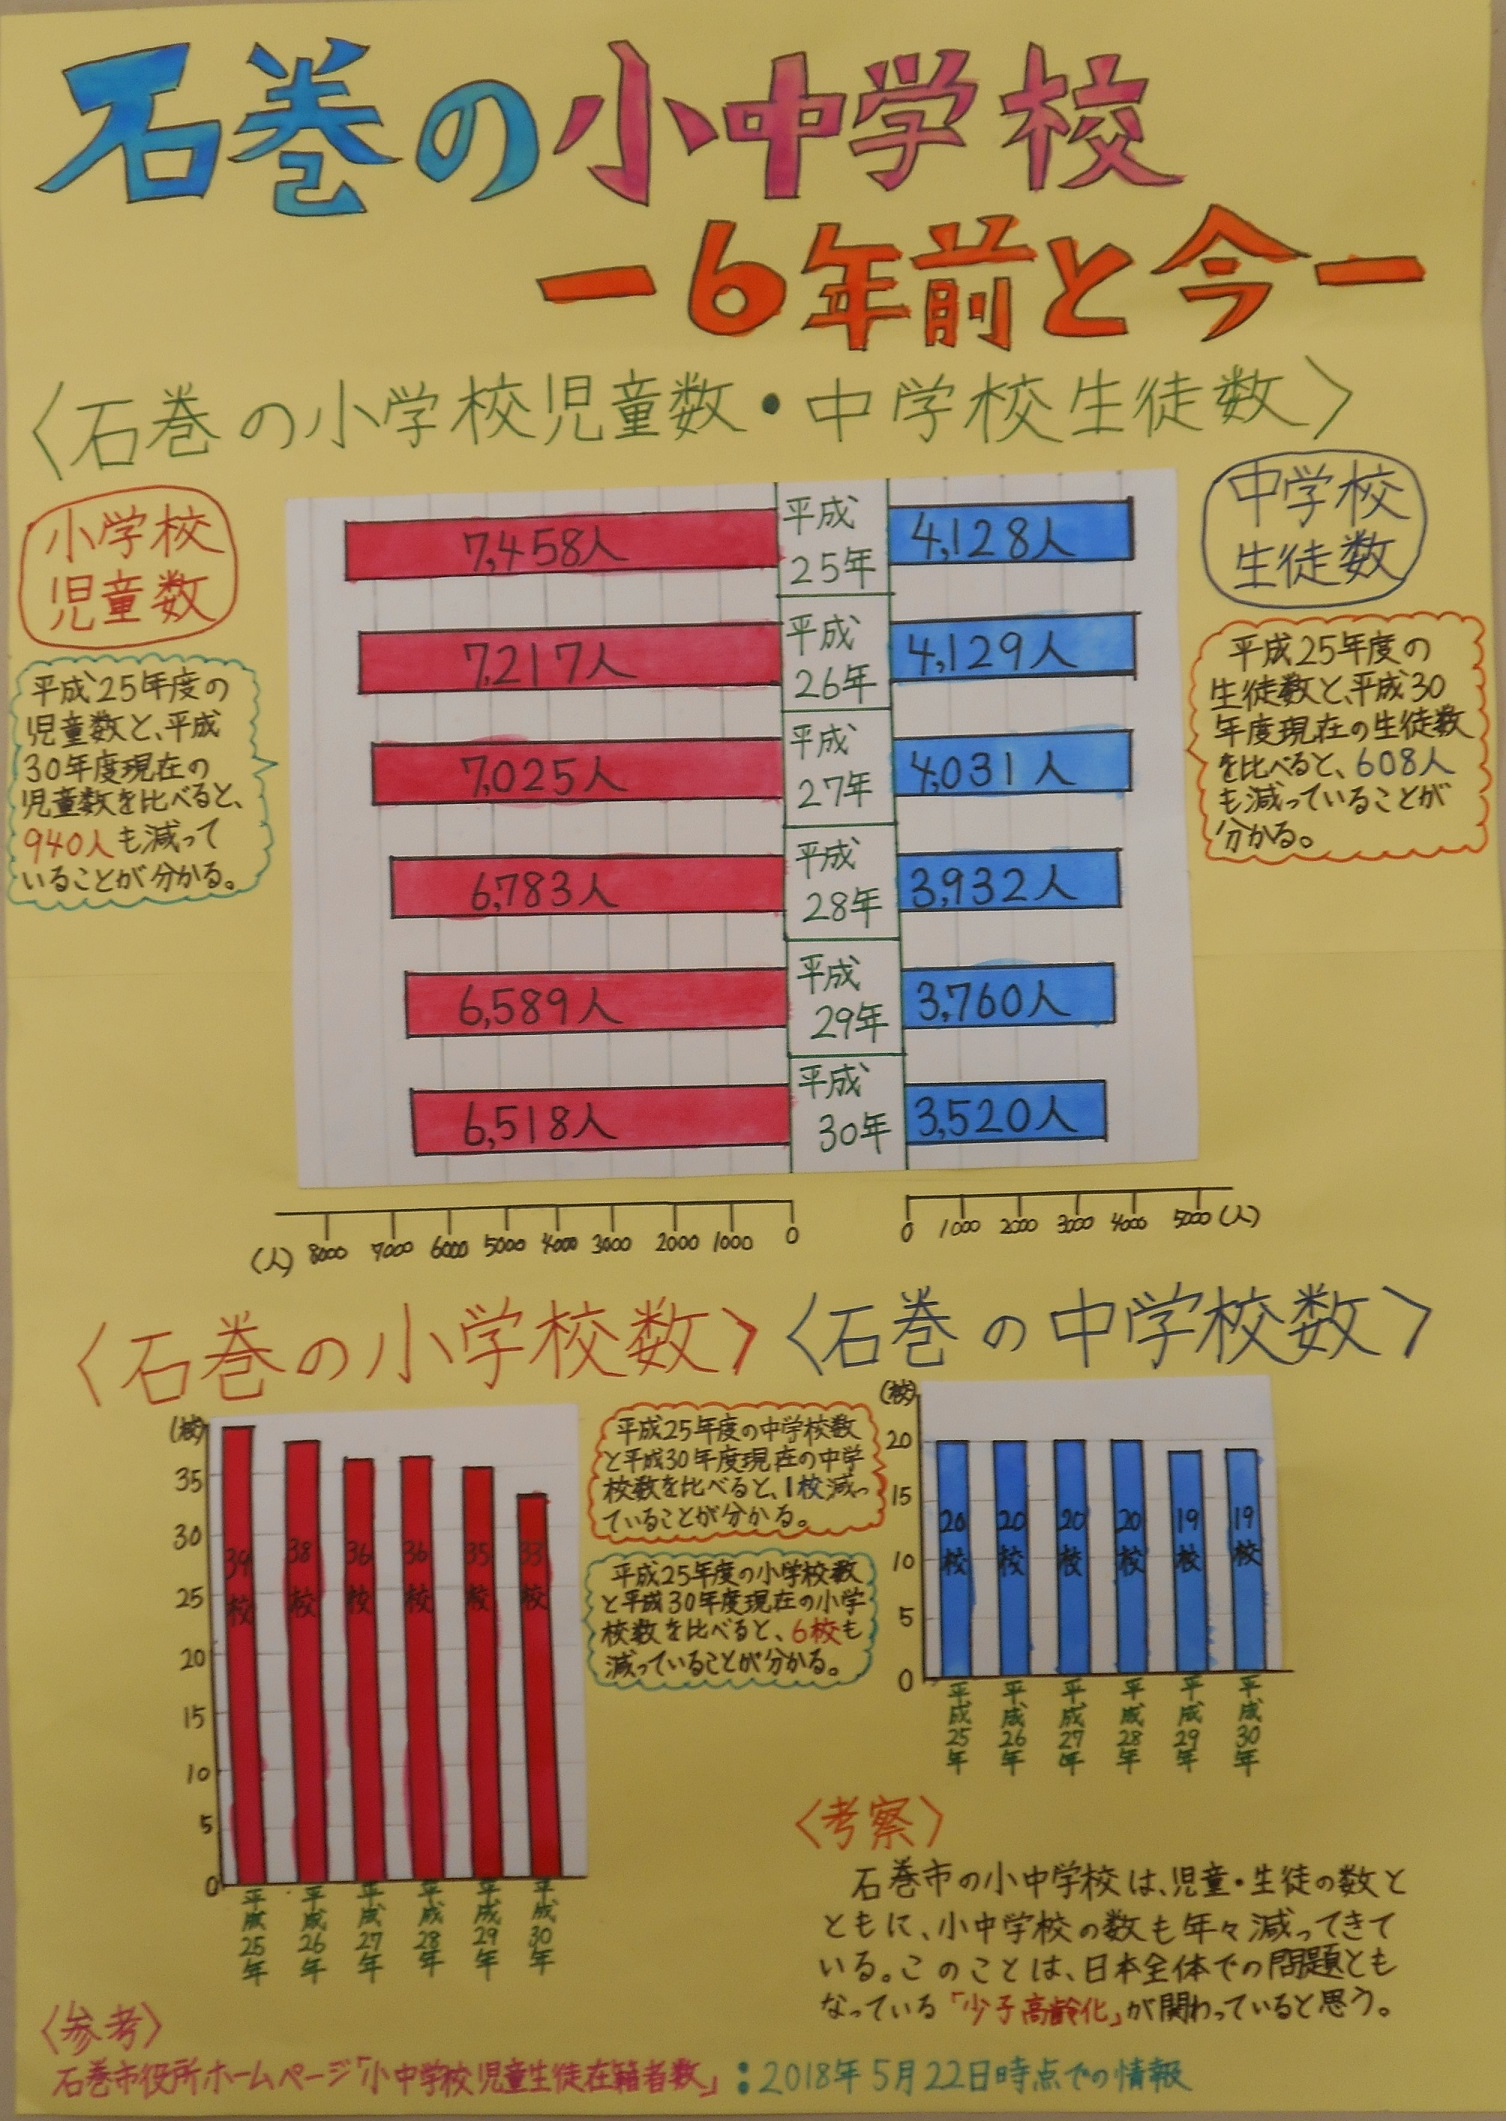 石巻の小中学校
－6年前と今－
〈石巻の小学校児童数・中学校生徒数〉
小学校
児童数
平成25年度の
児童数と、平成
30年度現在の
児童数を比べると、
940人も減って
いることが分かる。
7,458人 平成25年 4,128人
7,217人 平成26年 4,129人
7,025人 平成27年 4,031人
6,783人 平成28年 3,932人
6,589人 平成29年 3,760人
6,518人 平成30年 3,520人
(人) 8000 7000 6000 5000 4000 3000 2000 1000 0
0 1000 2000 3000 4000 5000 (人)
中学校
生徒数
平成25年度の
生徒数と、平成30
年度現在の生徒数
を比べると、608人
も減っていることが
分かる。
〈石巻の小学校数〉
(校)
35
30
25
20
15
10
5
0
39校 38校 36校 36校 35校 33校
平成25年 平成26年 平成27年 平成28年 平成29年 平成30年
平成25年度の中学校数
と平成30年度現在の中学
校数を比べると、1校減っ
ていることが分かる。
平成25年度の小学校数
と平成30年度現在の小学
校数を比べると、6校も
減っていることが分かる。
〈石巻の中学校数〉
(校)
20
15
10
5
0
20校 20校 20校 20校 19校 19校
平成25年 平成26年 平成27年 平成28年 平成29年 平成30年
〈考察〉
石巻市の小中学校は、児童・生徒の数と
ともに、小中学校の数も年々減ってきて
いる。このことは、日本全体での問題とも
なっている「少子高齢化」が関わっていると思う。
〈参考〉
石巻市役所ホームページ「小中学校児童生徒在籍者数」：2018年5月22日時点での情報